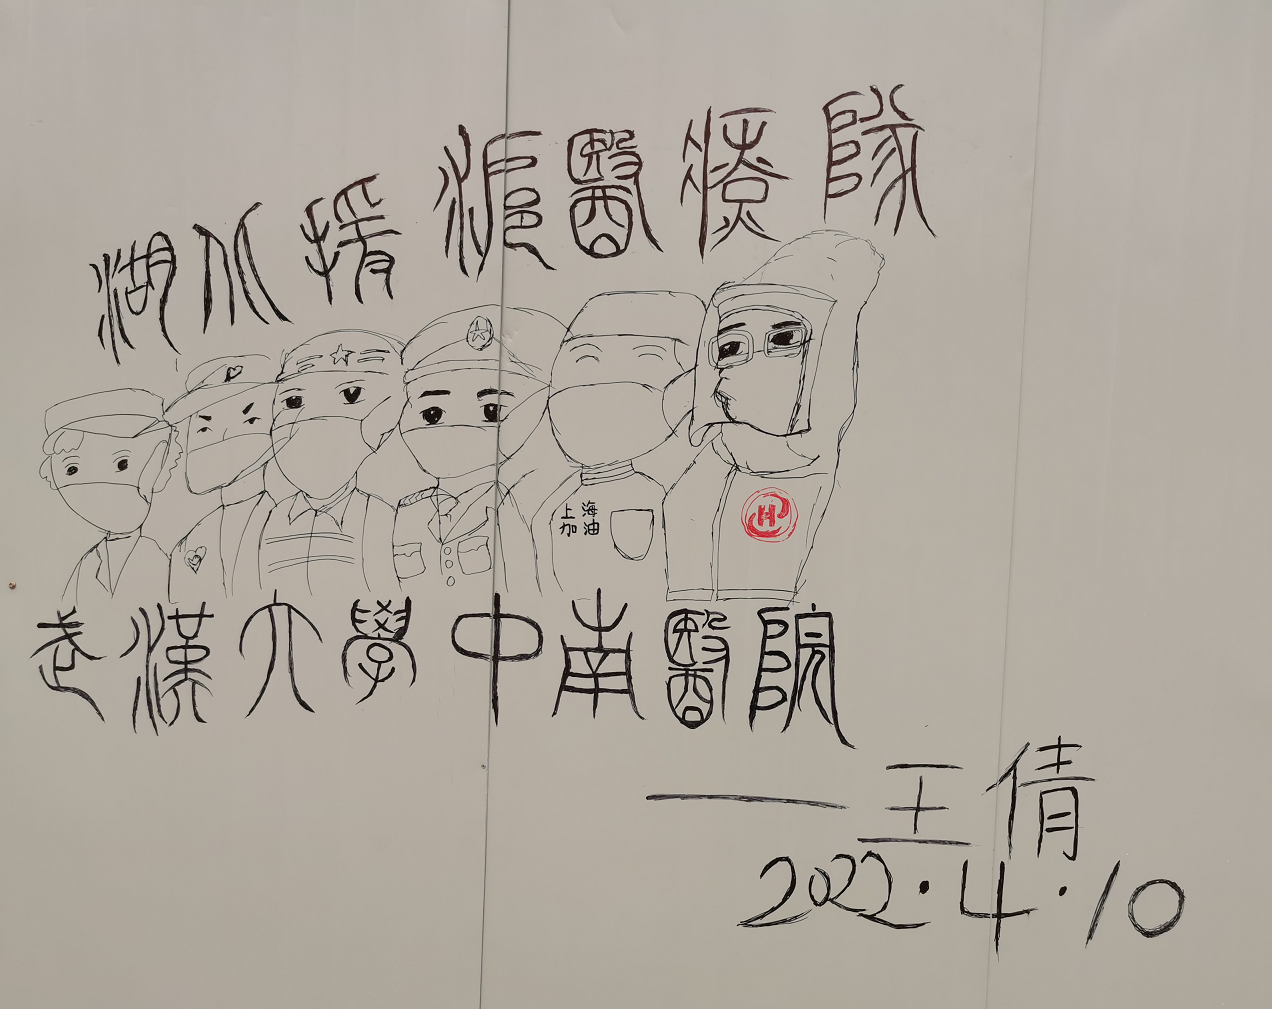 湖北援滬醫療隊
上海
加油
武漢大學中南醫院
——王倩
2022.4.10